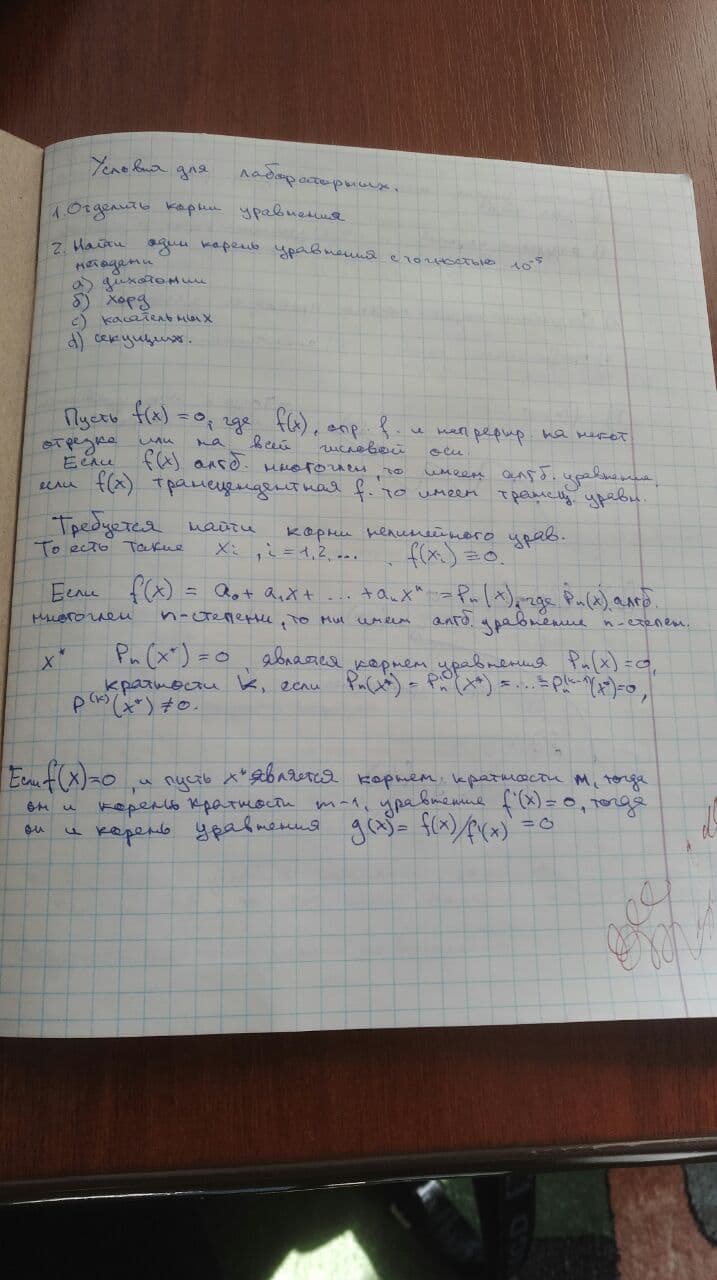 Условия для лабораторных.
1. Отделить корни уравнения
2. Найти один корень уравнения с точностью 10⁻⁵
методами
a) дихотомии
б) хорд
c) касательных
d) секущих.
Пусть f(x) = 0, где f(x), опр. f. и непрерыр. на некот
отрезке или на всей числовой оси.
Если f(x) алгб. многочлен, то имеем алгб. уравнение,
если f(x) трансцендентная f. то имеем трансц. уравн.
Требуется найти корни нелинейного урав.
То есть такие xᵢ, i = 1,2,... , f(xᵢ) ≡ 0.
Если f(x) = a₀ + a₁x + ... + aₙxⁿ = Pₙ(x), где Pₙ(x) алгб.
многочлен n-степени, то мы имеем алгб. уравнение n-степен.
x* Pₙ(x*) = 0, является корнем уравнения Pₙ(x) = 0,
кратности k, если Pₙ(x*) = Pₙ'(x*) = ... = Pₙ⁽ᵏ⁻¹⁾(x*) = 0,
P⁽ᵏ⁾(x*) ≠ 0.
Если f(x) = 0, и пусть x* является корнем кратности m, тогда
он и корень кратности m-1, уравнение f'(x) = 0, тогда
он и корень уравнения g(x) = f(x)/f'(x) = 0